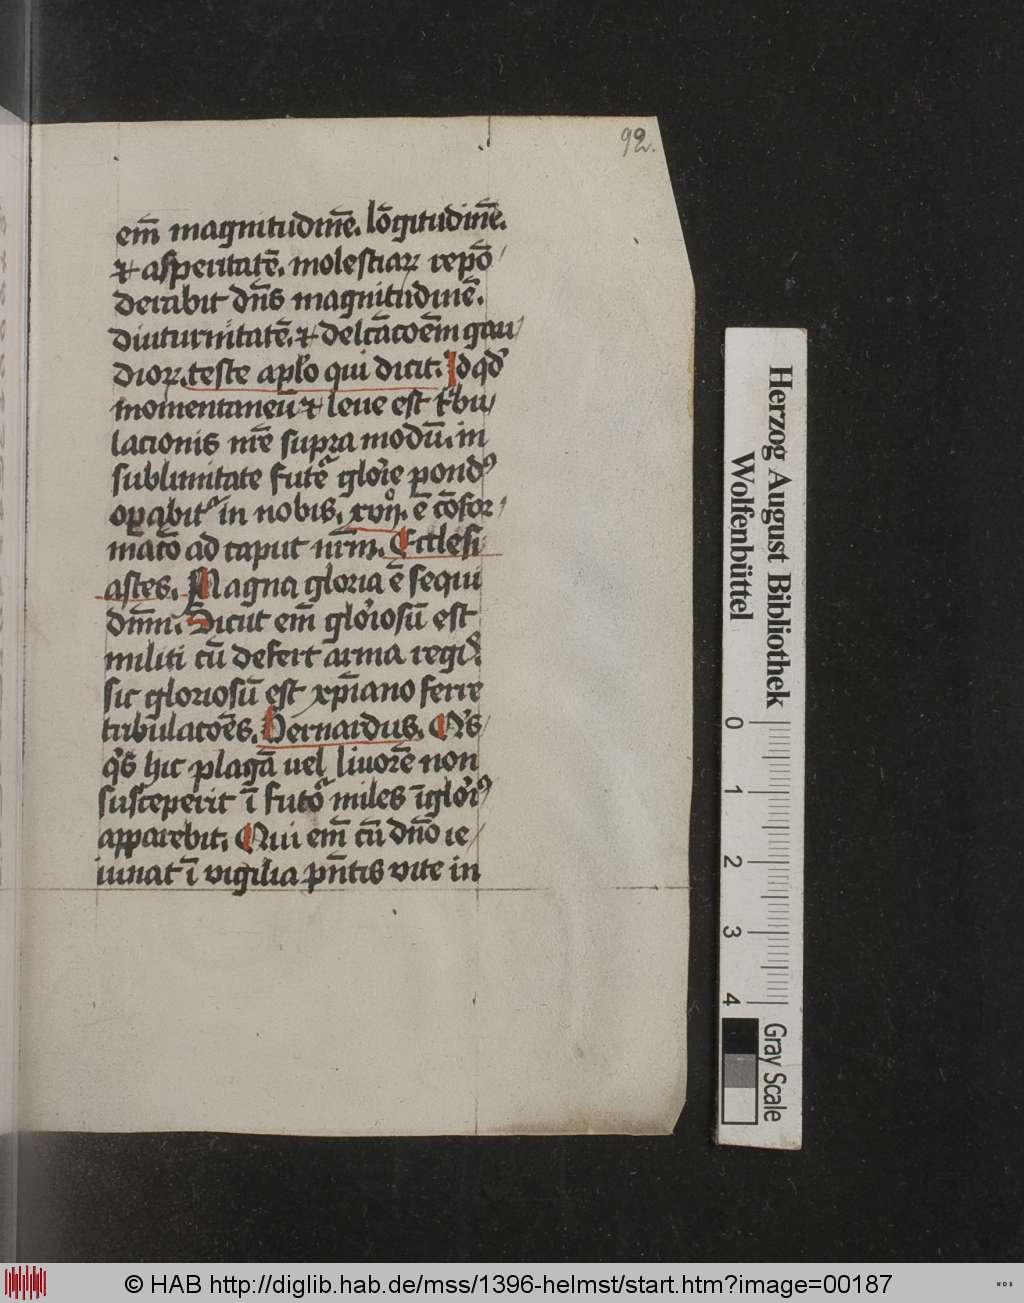 92.
em̄ magnitudinē. lōgitudinē.
⁊ asperitatē. molestiaꝝ repō/
derabit dn̄s magnitudinē.
diuturnitatē. ⁊ delc̄acōem̄ gau/
dioꝝ. teste apl̓o qui dicit. Id qd̓
momentaneū ⁊ leue est tͥbu/
lacionis nr̄e supra modū. in
sublimitate futᷓe glor̓ie pondꝰ
oꝑabit᷑ in nobis. xviij. ē cōfor/
matō ad caput nr̄m. Eccl̓esi
astes. Magna gloria ē sequi
dn̄m. Sicut em̄ glor̓iosū est
militi cū defert arma regis.
sic gloriosū est xp̄iano ferre
tribulacōes. Bernardus. Om̓s/
q̓s hic plagā uel liuorē non
susceperit ī futᷓo miles īglor̓iꝰ
apparebit. Qui em̄ cū dn̄o ie/
iunat ī vigilia pn̄tis vite in
Herzog August Bibliothek
Wolfenbüttel
0 1 2 3 4
Gray Scale
© HAB http://diglib.hab.de/mss/1396-helmst/start.htm?image=00187
WDB